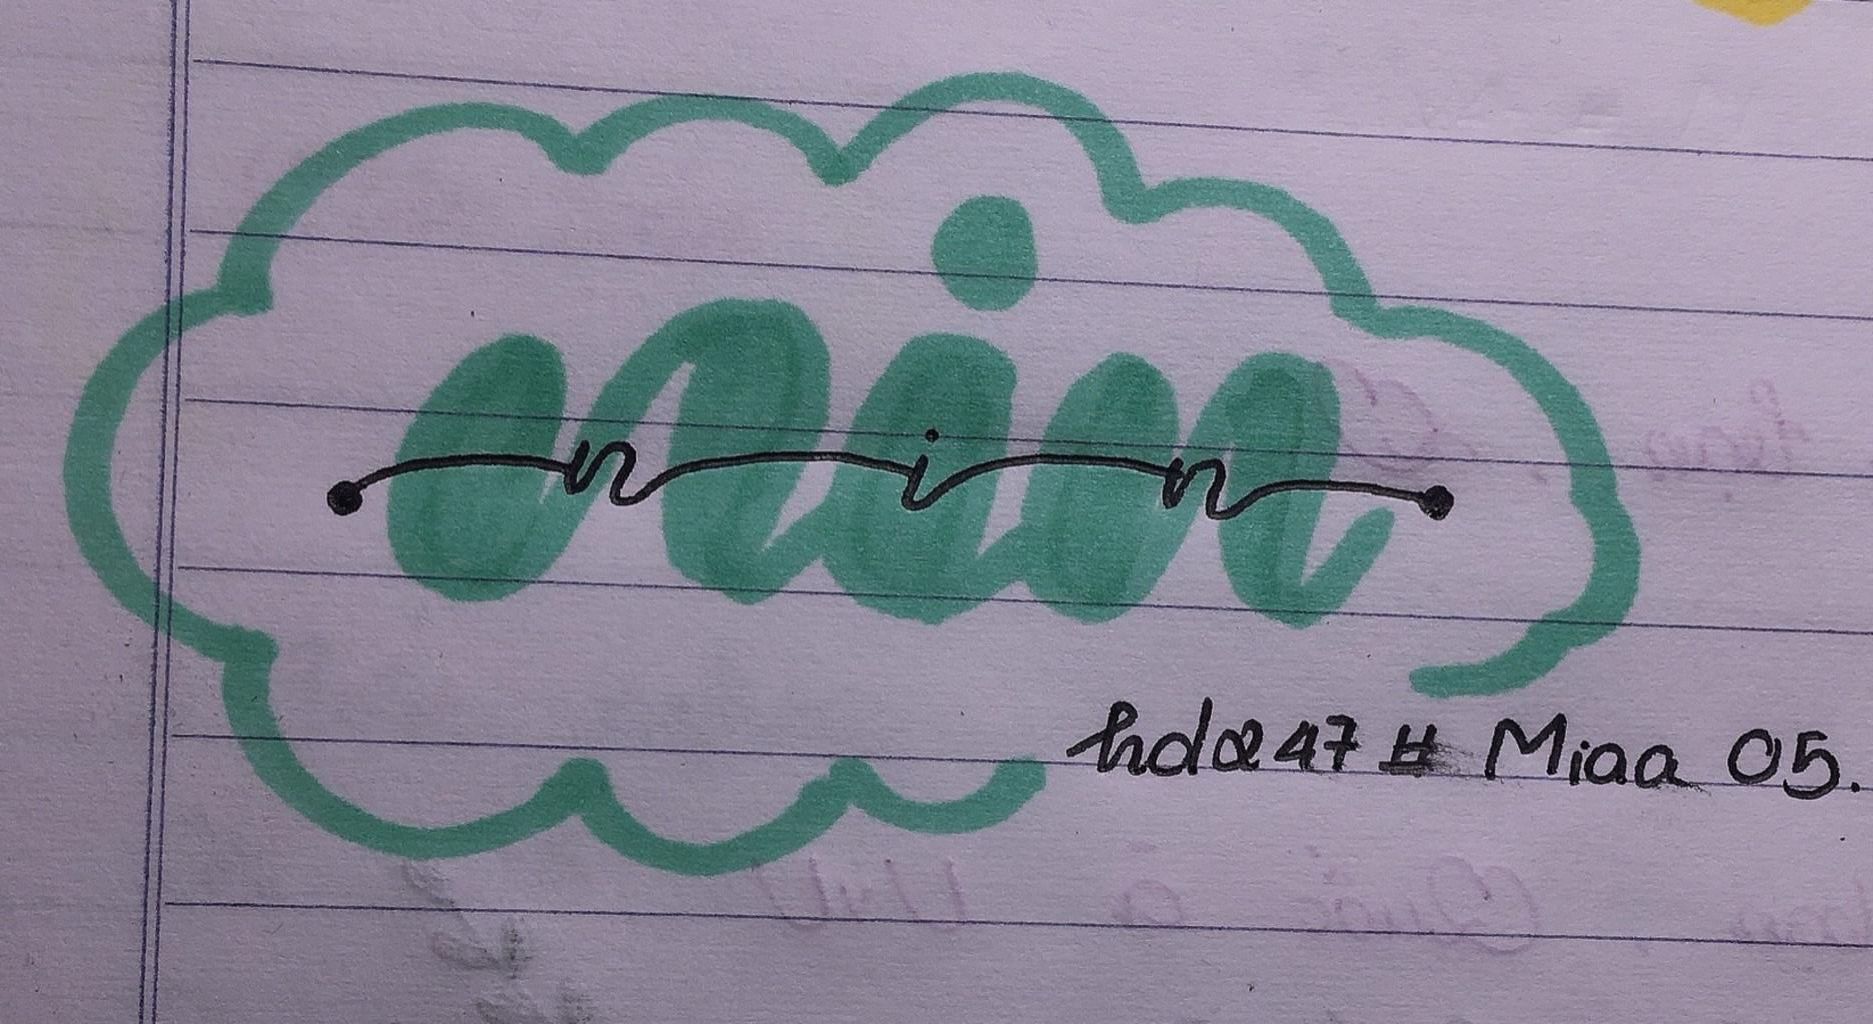 nin
nin
hda247 # Miaa 05.